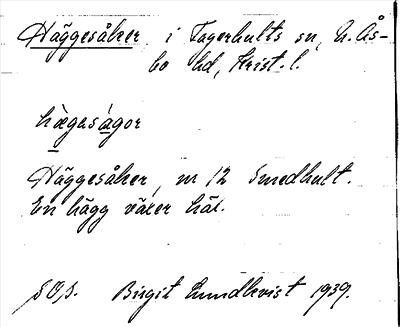 Häggesåker i Fagerhults sn, N. Ås-
bo hd, Krist. l.
hägasågor
Häggesåker, nr 12 Smedhult.
En hägg växer här.
Birgit Lundkvist 1939.